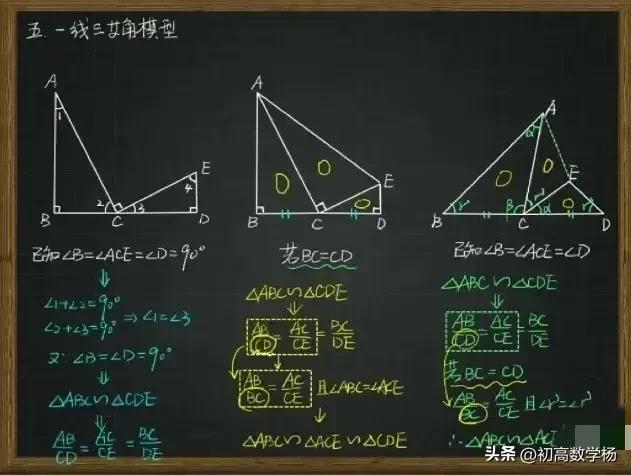 五. 一线三等角模型
A
1
2
3
4
E
B
C
D
已知∠B=∠ACE=∠D=90°
∠1+∠2=90°
∠2+∠3=90° ⇒∠1=∠3
又∵∠B=∠D=90°
⇓
△ABC∽△CDE
⇓
AB/CD=AC/CE=BC/DE
A
E
B
C
D
若BC=CD
△ABC∽△CDE
⇓
AB/CD=AC/CE=BC/DE
↓
AB/BC=AC/CE 且∠ABC=∠ACE
↓
△ABC∽△ACE∽△CDE
A
α
E
r
β
r
α
r
B
C
D
已知∠B=∠ACE=∠D
△ABC∽△CDE
⇓
AB/CD=AC/CE=BC/DE
若BC=CD
AB/BC=AC/CE 且∠r=∠r
∴△ABC∽△ACE
头条 @初高数学杨